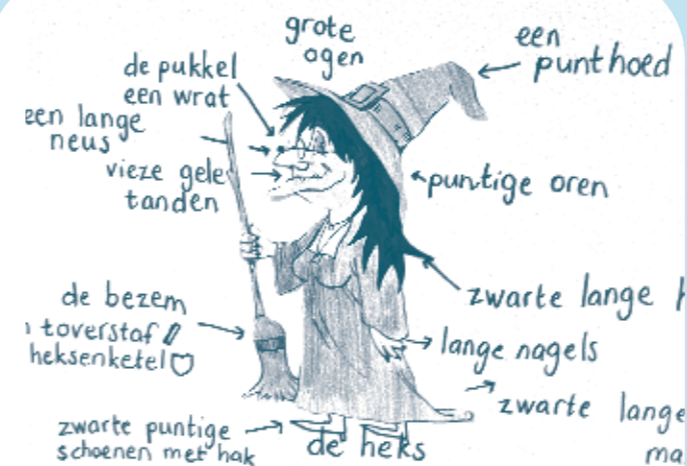 grote
ogen
een
punthoed
de pukkel
een wrat
een lange
neus
vieze gele
tanden
puntige oren
zwarte lange
de bezem
toverstaf
heksenketel
lange nagels
zwarte lange
zwarte puntige
schoenen met hak
de heks